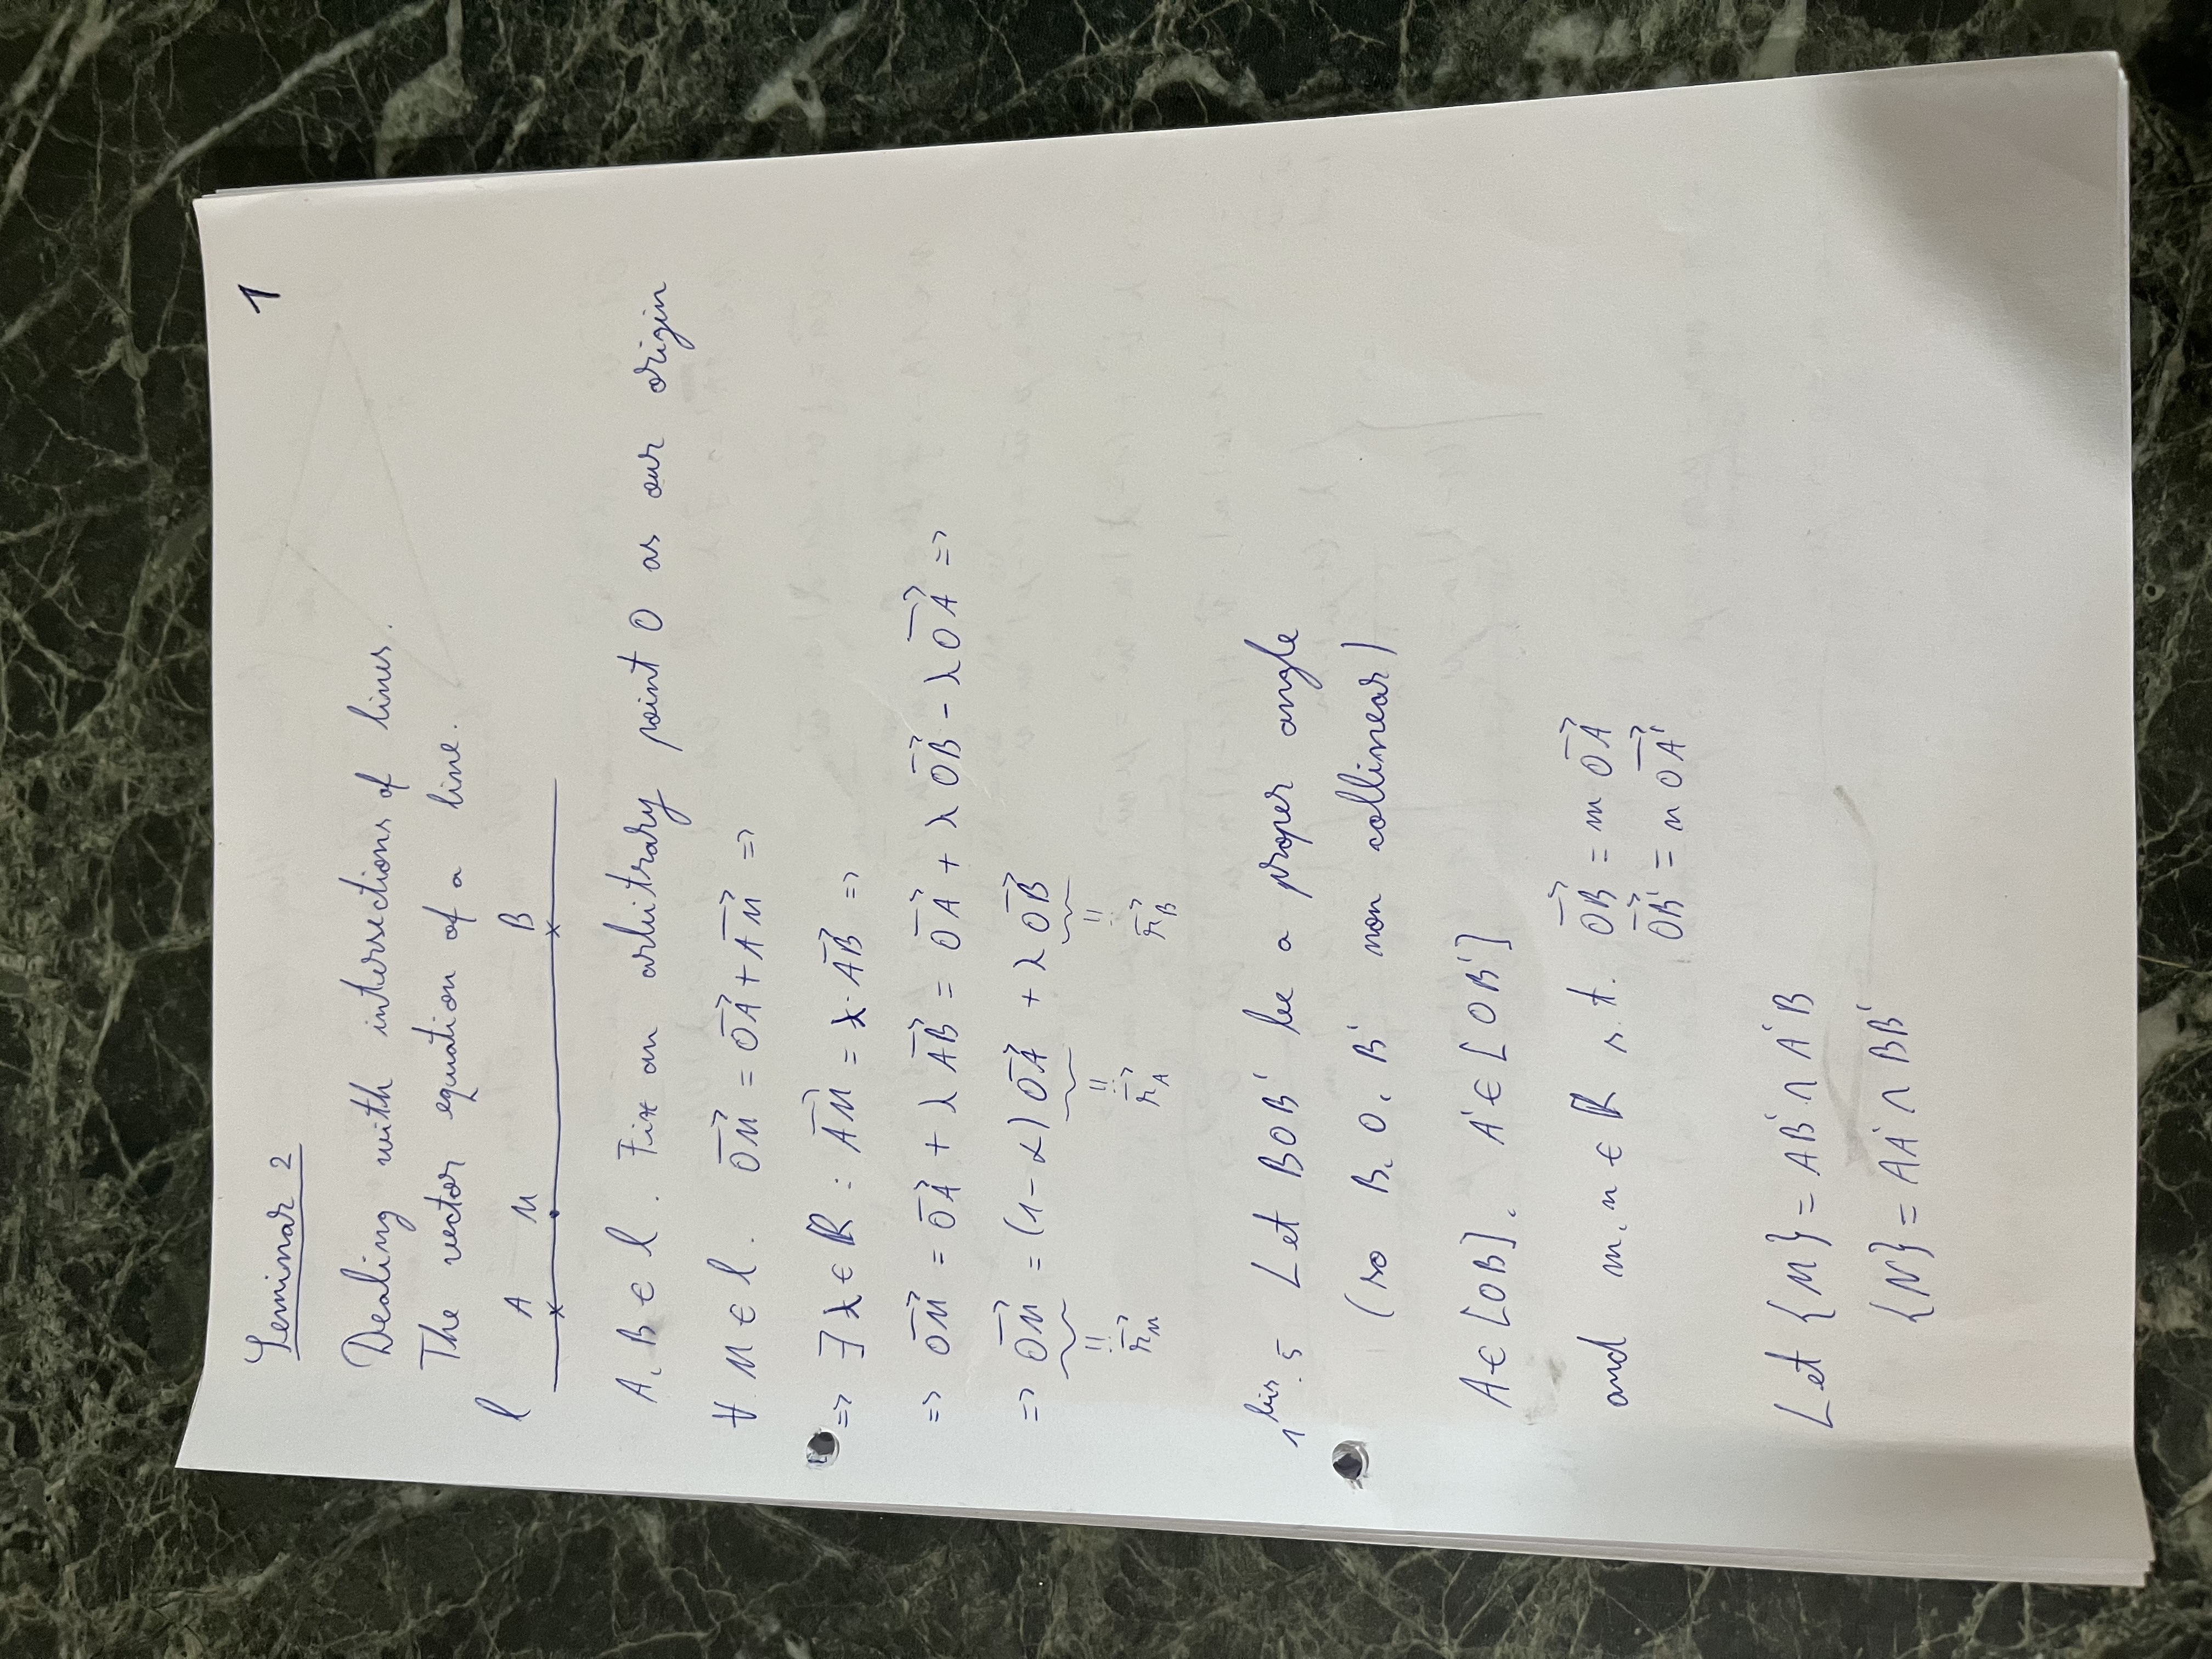 1
Seminar 2
Dealing with intersections of lines.
The vector equation of a line.
l A M B
A, B ∈ l. Fix an arbitrary point O as our origin
∀ M ∈ l. OM⃗ = OA⃗ + AM⃗ =>
=> ∃ λ ∈ ℝ : AM⃗ = λ · AB⃗ =>
=> OM⃗ = OA⃗ + λ AB⃗ = OA⃗ + λ OB⃗ - λ OA⃗ =>
=> OM⃗ = (1-λ) OA⃗ + λ OB⃗
!! !! !!
r⃗_M r⃗_A r⃗_B
1^bis. 5 Let BOB' be a proper angle
(so B, O, B' non collinear)
A ∈ [OB], A' ∈ [OB']
and m, n ∈ ℝ s.t. OB⃗ = m OA⃗
OB'⃗ = n OA'⃗
Let {M} = AB' ∩ A'B
{N} = AA' ∩ BB'